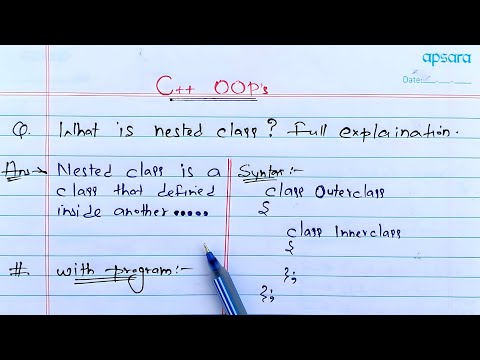 apsara
Date:
C++ OOP's
Q. What is nested class? Full explaination.
Ans → Nested class is a
class that defined
inside another .....
# with program:-
Syntax:-
class Outerclass
{
class Innerclass
{
};
};